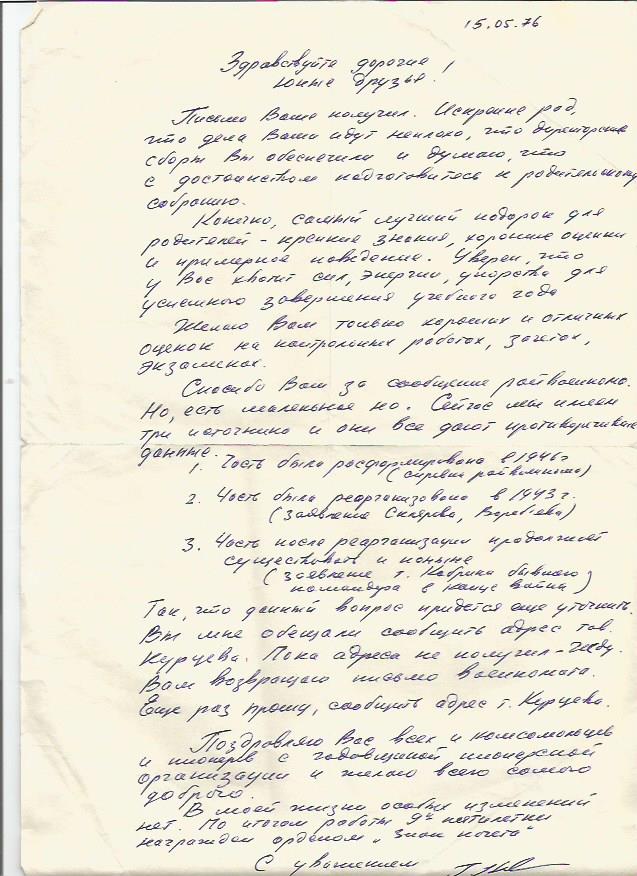 15.05.76
Здравствуйте дорогие
юные друзья!
Письмо Ваше получил. Искренне рад,
что дела Ваши идут неплохо, что директорские
сборы Вы обеспечили и думаю, что
с достоинством подготовитесь к родительскому
собранию.
Конечно, самый лучший подарок для
родителей - крепкие знания, хорошие оценки
и примерное поведение. Уверен, что
у Вас хватит сил, энергии, упорства для
успешного завершения учебного года
Желаю Вам только хороших и отличных
оценок на контрольных работах, зачетах,
экзаменах.
Спасибо Вам за сообщение райвоенкома.
Но, есть маленькое но. Сейчас мы имеем
три источника и они все дают противоречивые
данные.
1. Часть была расформирована в 1946г
(справка райвоенкома)
2. Часть была реорганизована в 1943 г.
(Заявление Склярова, Воробьева)
3. Часть после реорганизации продолжает
существовать и поныне
(Заявление т. Кабрина бывшего
командира в конце войны)
Так, что данный вопрос придется еще уточнить.
Вы мне обещали сообщить адрес тов.
Курцева. Пока адреса не получил - жду.
Вам возвращаю письмо военкомата.
Еще раз прошу, сообщить адрес т. Курцева.
Поздравляю Вас всех и комсомольцев
и пионеров с годовщиной пионерской
организации и желаю всего самого
доброго.
В моей жизни особых изменений
нет. По итогам работы 9й пятилетки
награжден орденом „Знак почета"
С уважением